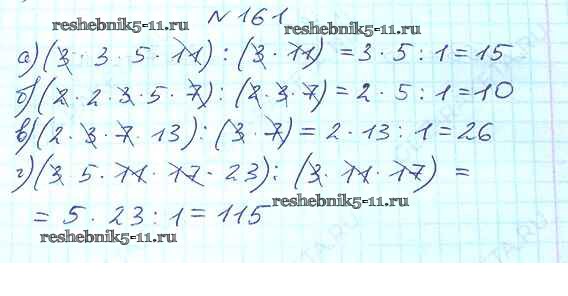 № 161
reshebnik5-11.ru reshebnik5-11.ru
а) (3 · 3 · 5 · 11) : (3 · 11) = 3 · 5 : 1 = 15
б) (2 · 2 · 3 · 5 · 7) : (2 · 3 · 7) = 2 · 5 : 1 = 10
в) (2 · 3 · 7 · 13) : (3 · 7) = 2 · 13 : 1 = 26
г) (3 5 · 11 · 17 · 23) : (3 · 11 · 17) =
reshebnik5-11.ru
= 5 · 23 : 1 = 115
reshebnik5-11.ru